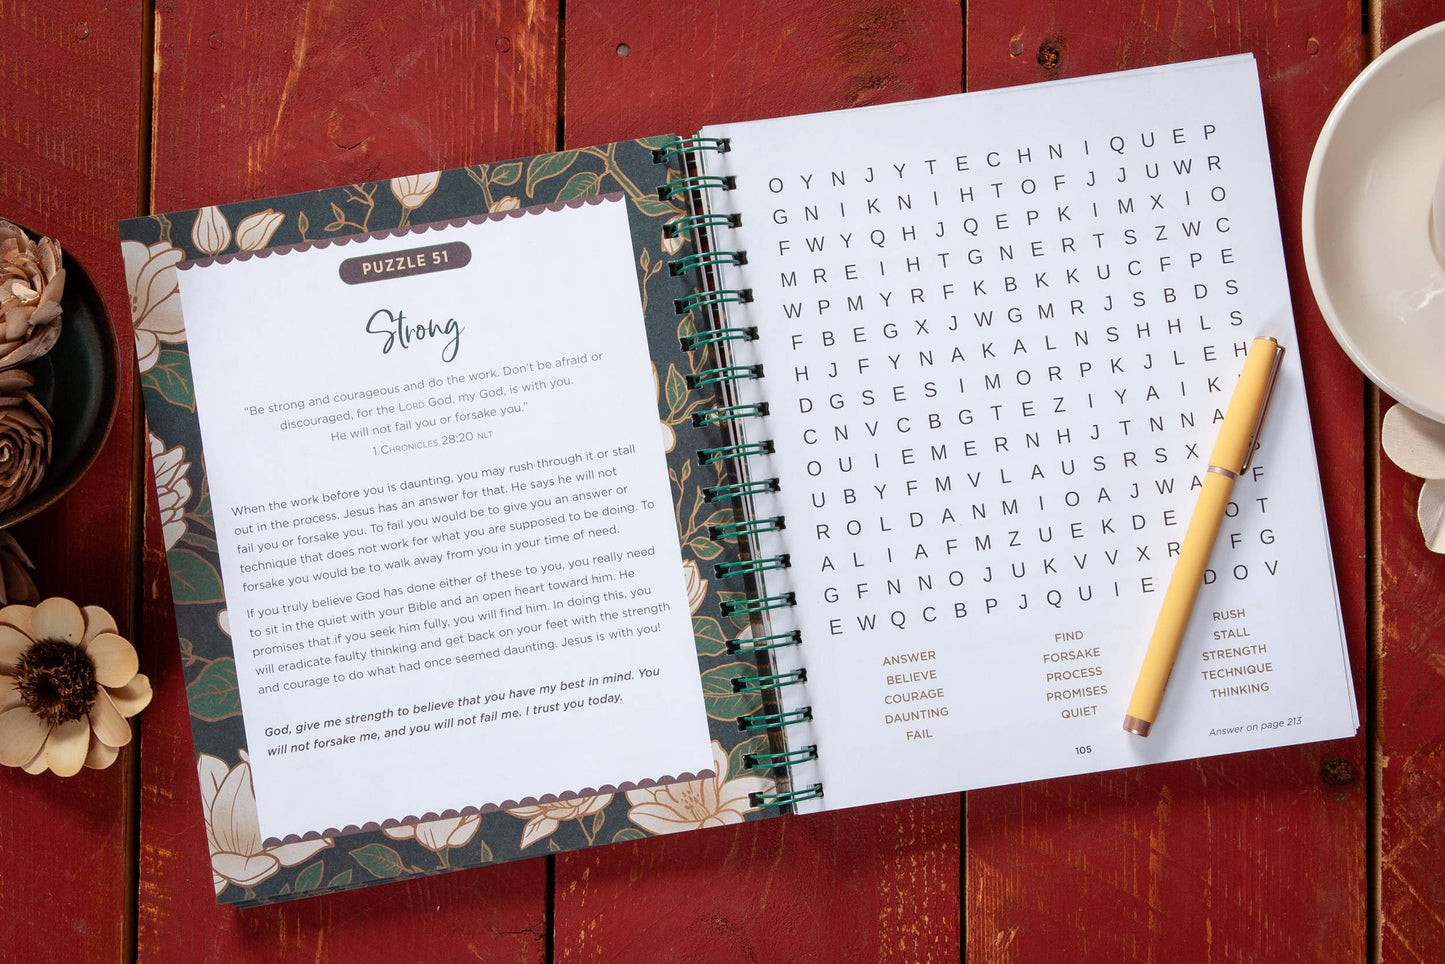 PUZZLE 51
Strong
“Be strong and courageous and do the work. Don’t be afraid or
discouraged, for the LORD God, my God, is with you.
He will not fail you or forsake you.”
1 CHRONICLES 28:20 NLT
When the work before you is daunting, you may rush through it or stall
out in the process. Jesus has an answer for that. He says he will not
fail you or forsake you. To fail you would be to give you an answer or
technique that does not work for what you are supposed to be doing. To
forsake you would be to walk away from you in your time of need.
If you truly believe God has done either of these to you, you really need
to sit in the quiet with your Bible and an open heart toward him. He
promises that if you seek him fully, you will find him. In doing this, you
will eradicate faulty thinking and get back on your feet with the strength
and courage to do what had once seemed daunting. Jesus is with you!
God, give me strength to believe that you have my best in mind. You
will not forsake me, and you will not fail me. I trust you today.
O Y N J Y T E C H N I Q U E P
G N I K N I H T O F J J U W R
F W Y Q H J Q E P K I M X I O
M R E I H T G N E R T S Z W C
W P M Y R F K B K K U C F P E
F B E G X J W G M R J S B D S
H J F Y N A K A L N S H H L S
D G S E S I M O R P K J L E H
C N V C B G T E Z I Y A I K
O U I E M E R N H J T N N A
U B Y F M V L A U S R S X
R O L D A N M I O A J W A F
A L I A F M Z U E K D E O T
G F N N O J U K V V X R F G
E W Q C B P J Q U I E D O V
ANSWER
BELIEVE
COURAGE
DAUNTING
FAIL
FIND
FORSAKE
PROCESS
PROMISES
QUIET
RUSH
STALL
STRENGTH
TECHNIQUE
THINKING
105
Answer on page 213